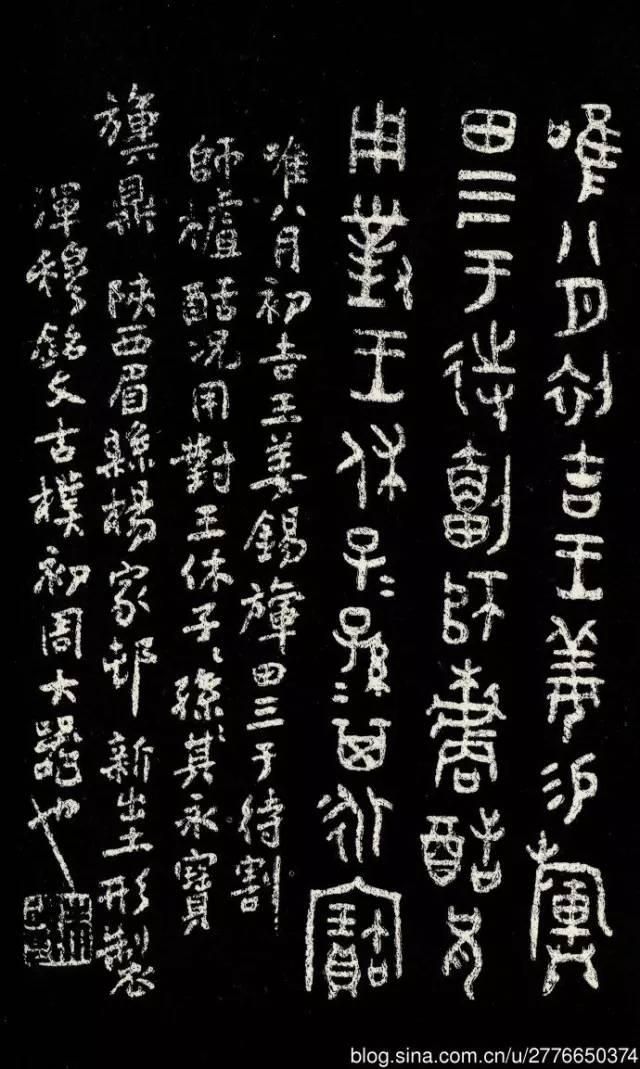 唯八月初吉王姜易旟
田三于待劃師櫨酷兄
用對王休子〻孫〻其永寶
唯八月初吉王姜錫旟田三于待割
師櫨酷況用對王休子〻孫〻其永寶
旟鼎 陝西眉縣楊家邨 新出土形製
渾穆銘文古樸初周大器也
blog.sina.com.cn/u/2776650374